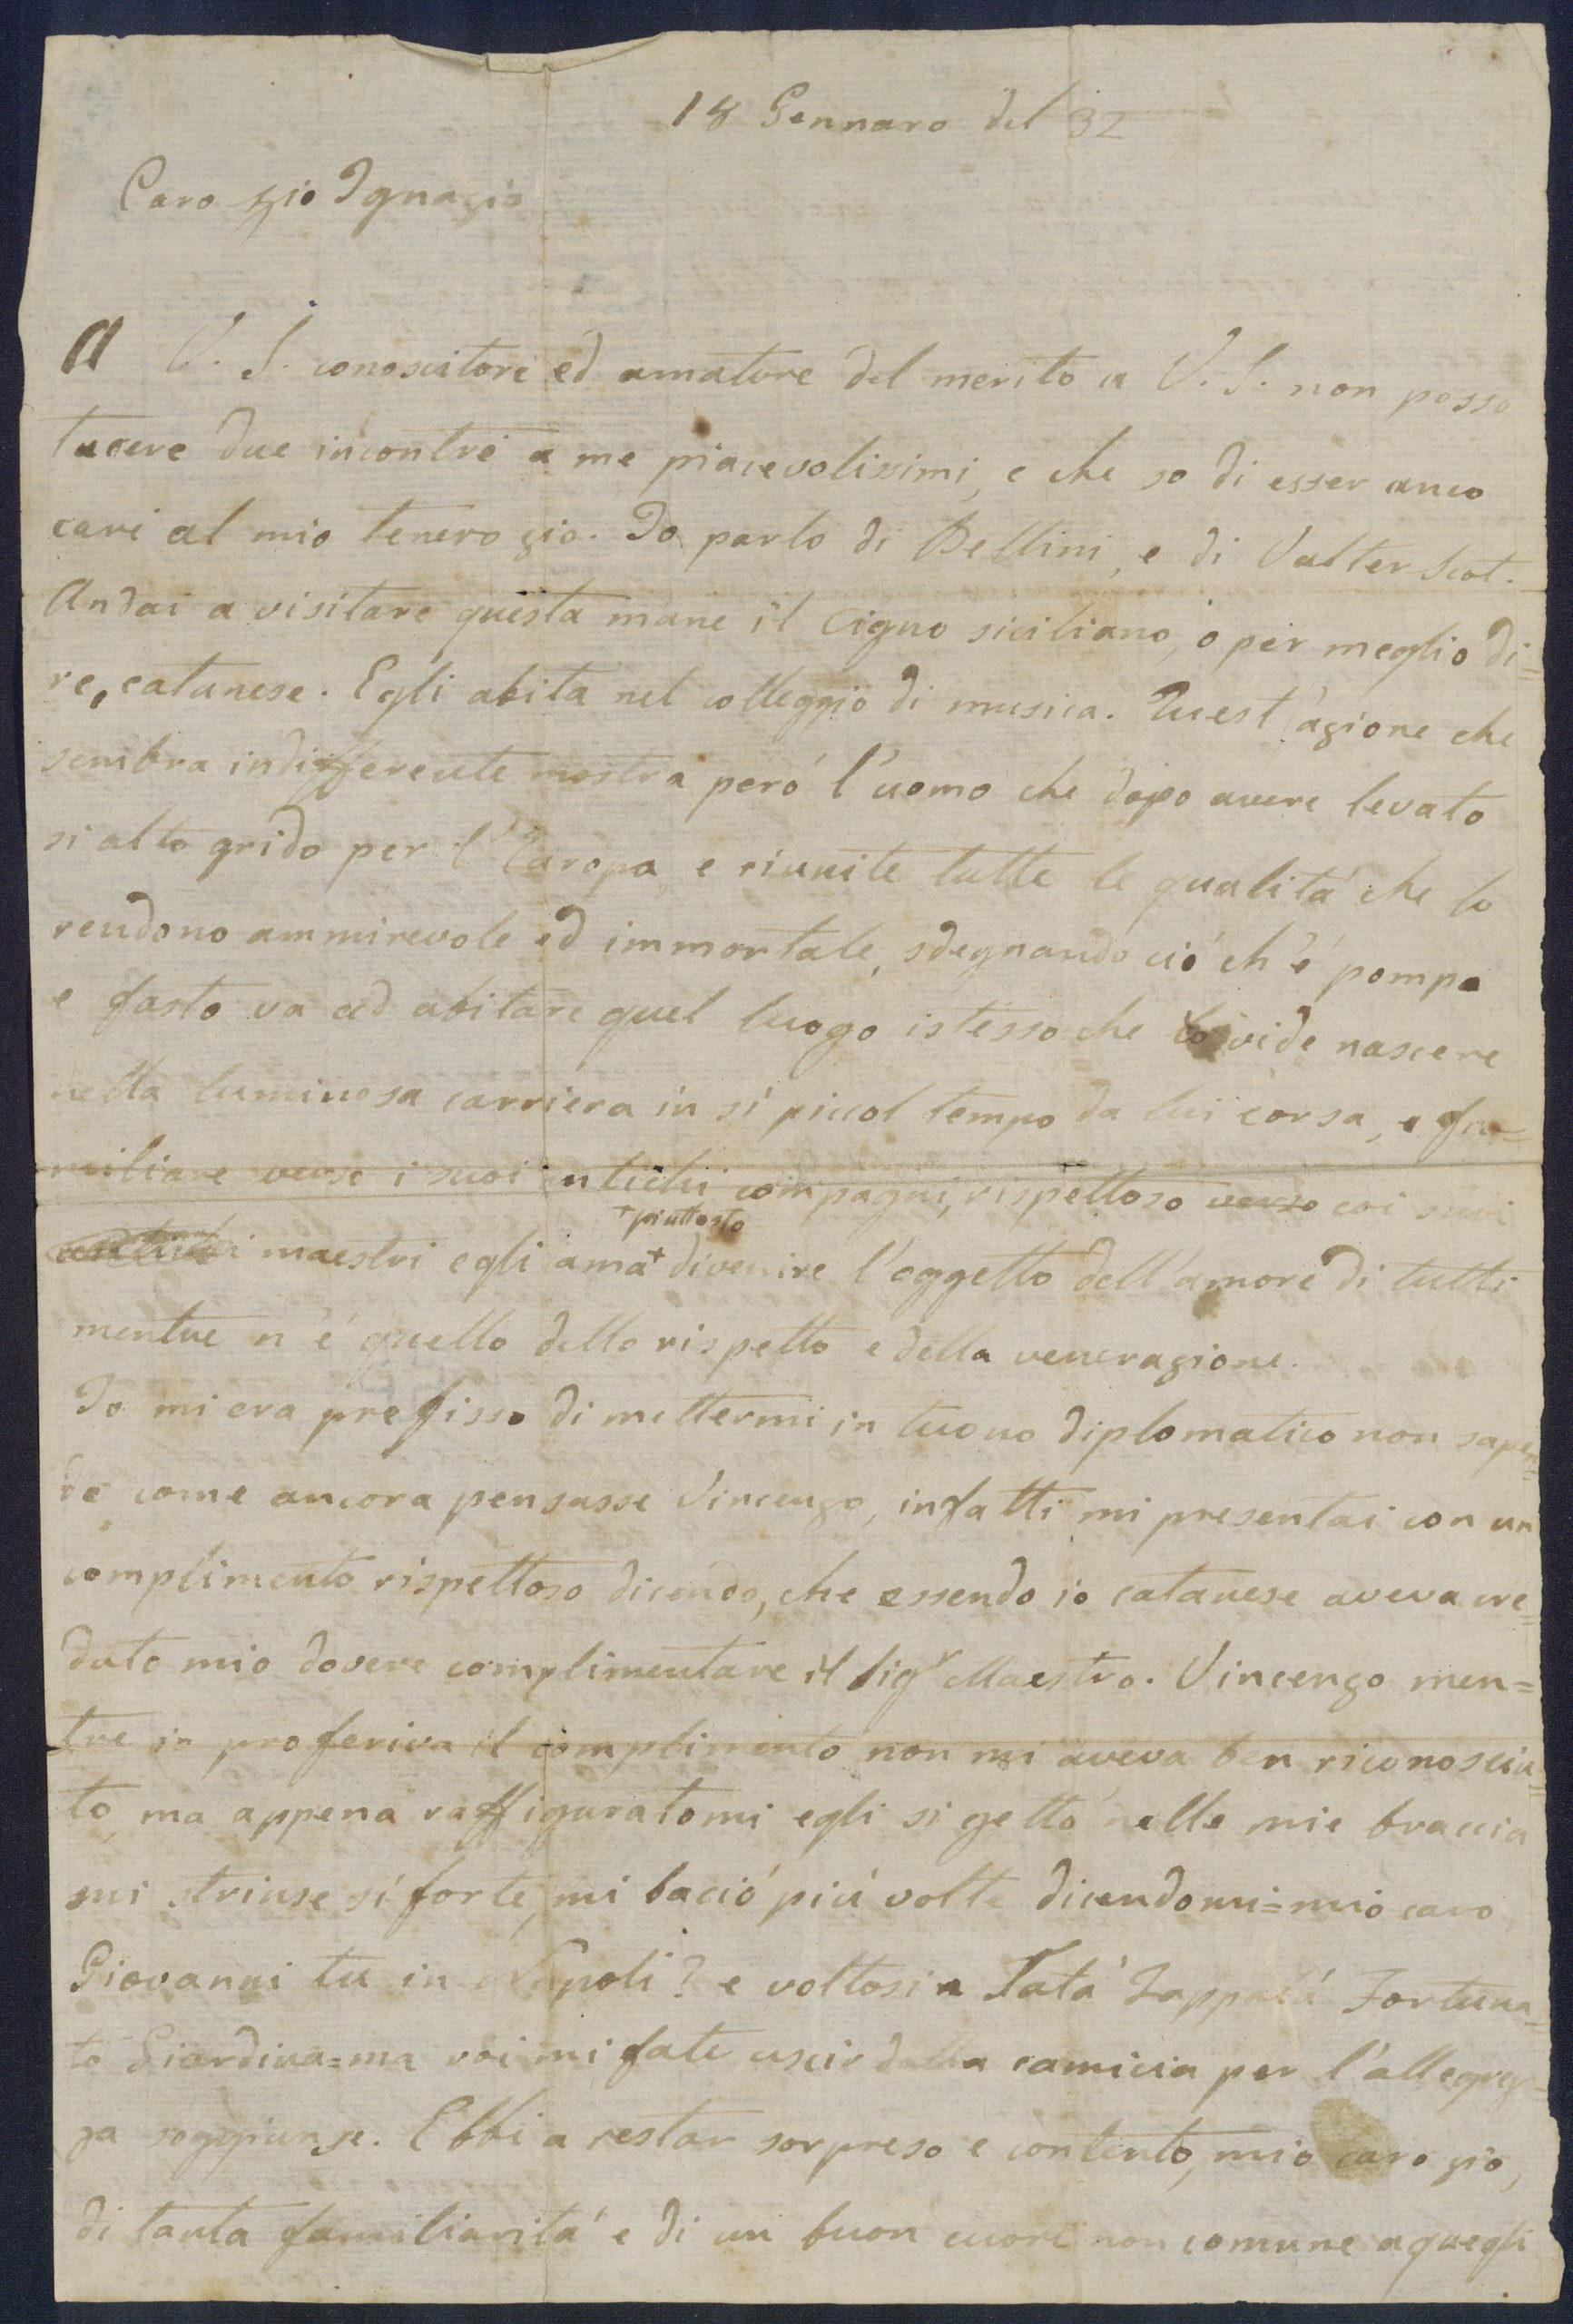 18 Gennaro del 32
Caro zio Ignazio
A V. S. conoscitore ed amatore del merito a V. S. non posso
tacere due incontri a me piacevolissimi, e che so di esser anco
cari al mio tenero zio. Io parlo di Bellini, e di Valter Scot.
Andai a visitare questa mane il Cigno siciliano, o per meglio di=
re, catanese. Egli abita nel colleggio di musica. Quest'azione che
sembra indifferente mostra peró l'uomo che dopo avere levato
si alto grido per l'Europa, e riunite tutte le qualitá che lo
rendono ammirevole ed immortale, sdegnando ció ch'é pompa
e fasto va ad abitare quel luogo istesso che lo vide nascere
nella luminosa carriera in sí piccol tempo da lui corsa, e fa=
miliare verso i suoi antichi compagni, rispettoso verso coi suoi
maestri egli ama+ divenire l'oggetto dell'amore di tutti
+piuttosto
mentre n'é quello dello rispetto e della venerazione.
Io mi era prefisso di mettermi in tuono diplomatico non sapen=
do come ancora pensasse Vincenzo, infatti mi presentai con un
complimento rispettoso dicendo, che essendo io catanese aveva cre=
duto mio dovere complimentare il Sigr Maestro. Vincenzo men=
tre io proferiva il complimento non mi aveva ben riconosciu=
to, ma appena raffiguratomi egli si gettó nelle mie braccia
mi strinse sí forte, mi bació piú volte dicendomi=mio caro
Giovanni tu in Napoli? e voltosi a Tatá Zappalá Fortuna=
to Giardina=ma voi mi fate uscir dalla camicia per l'allegrez=
za soggiunse. Ebbi a restar sorpreso e contento, mio caro zio,
di tanta familiaritá e di un buon cuore non comune a quegli